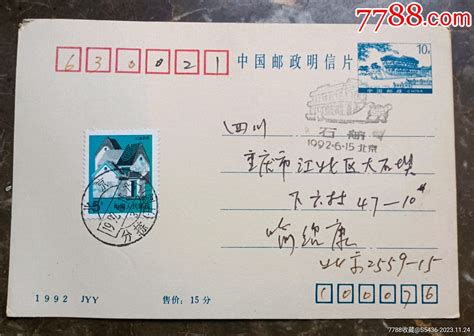 7788.com
630021
中国邮政明信片
10分
中国邮政
石舫
1992·6·15 北京
四川
重庆市江北区大石坝
下六村 47-10#
喻绍康
北京2559-15
100076
1992 JYY
售价：15分
7788收藏@S5436-2023.11.24